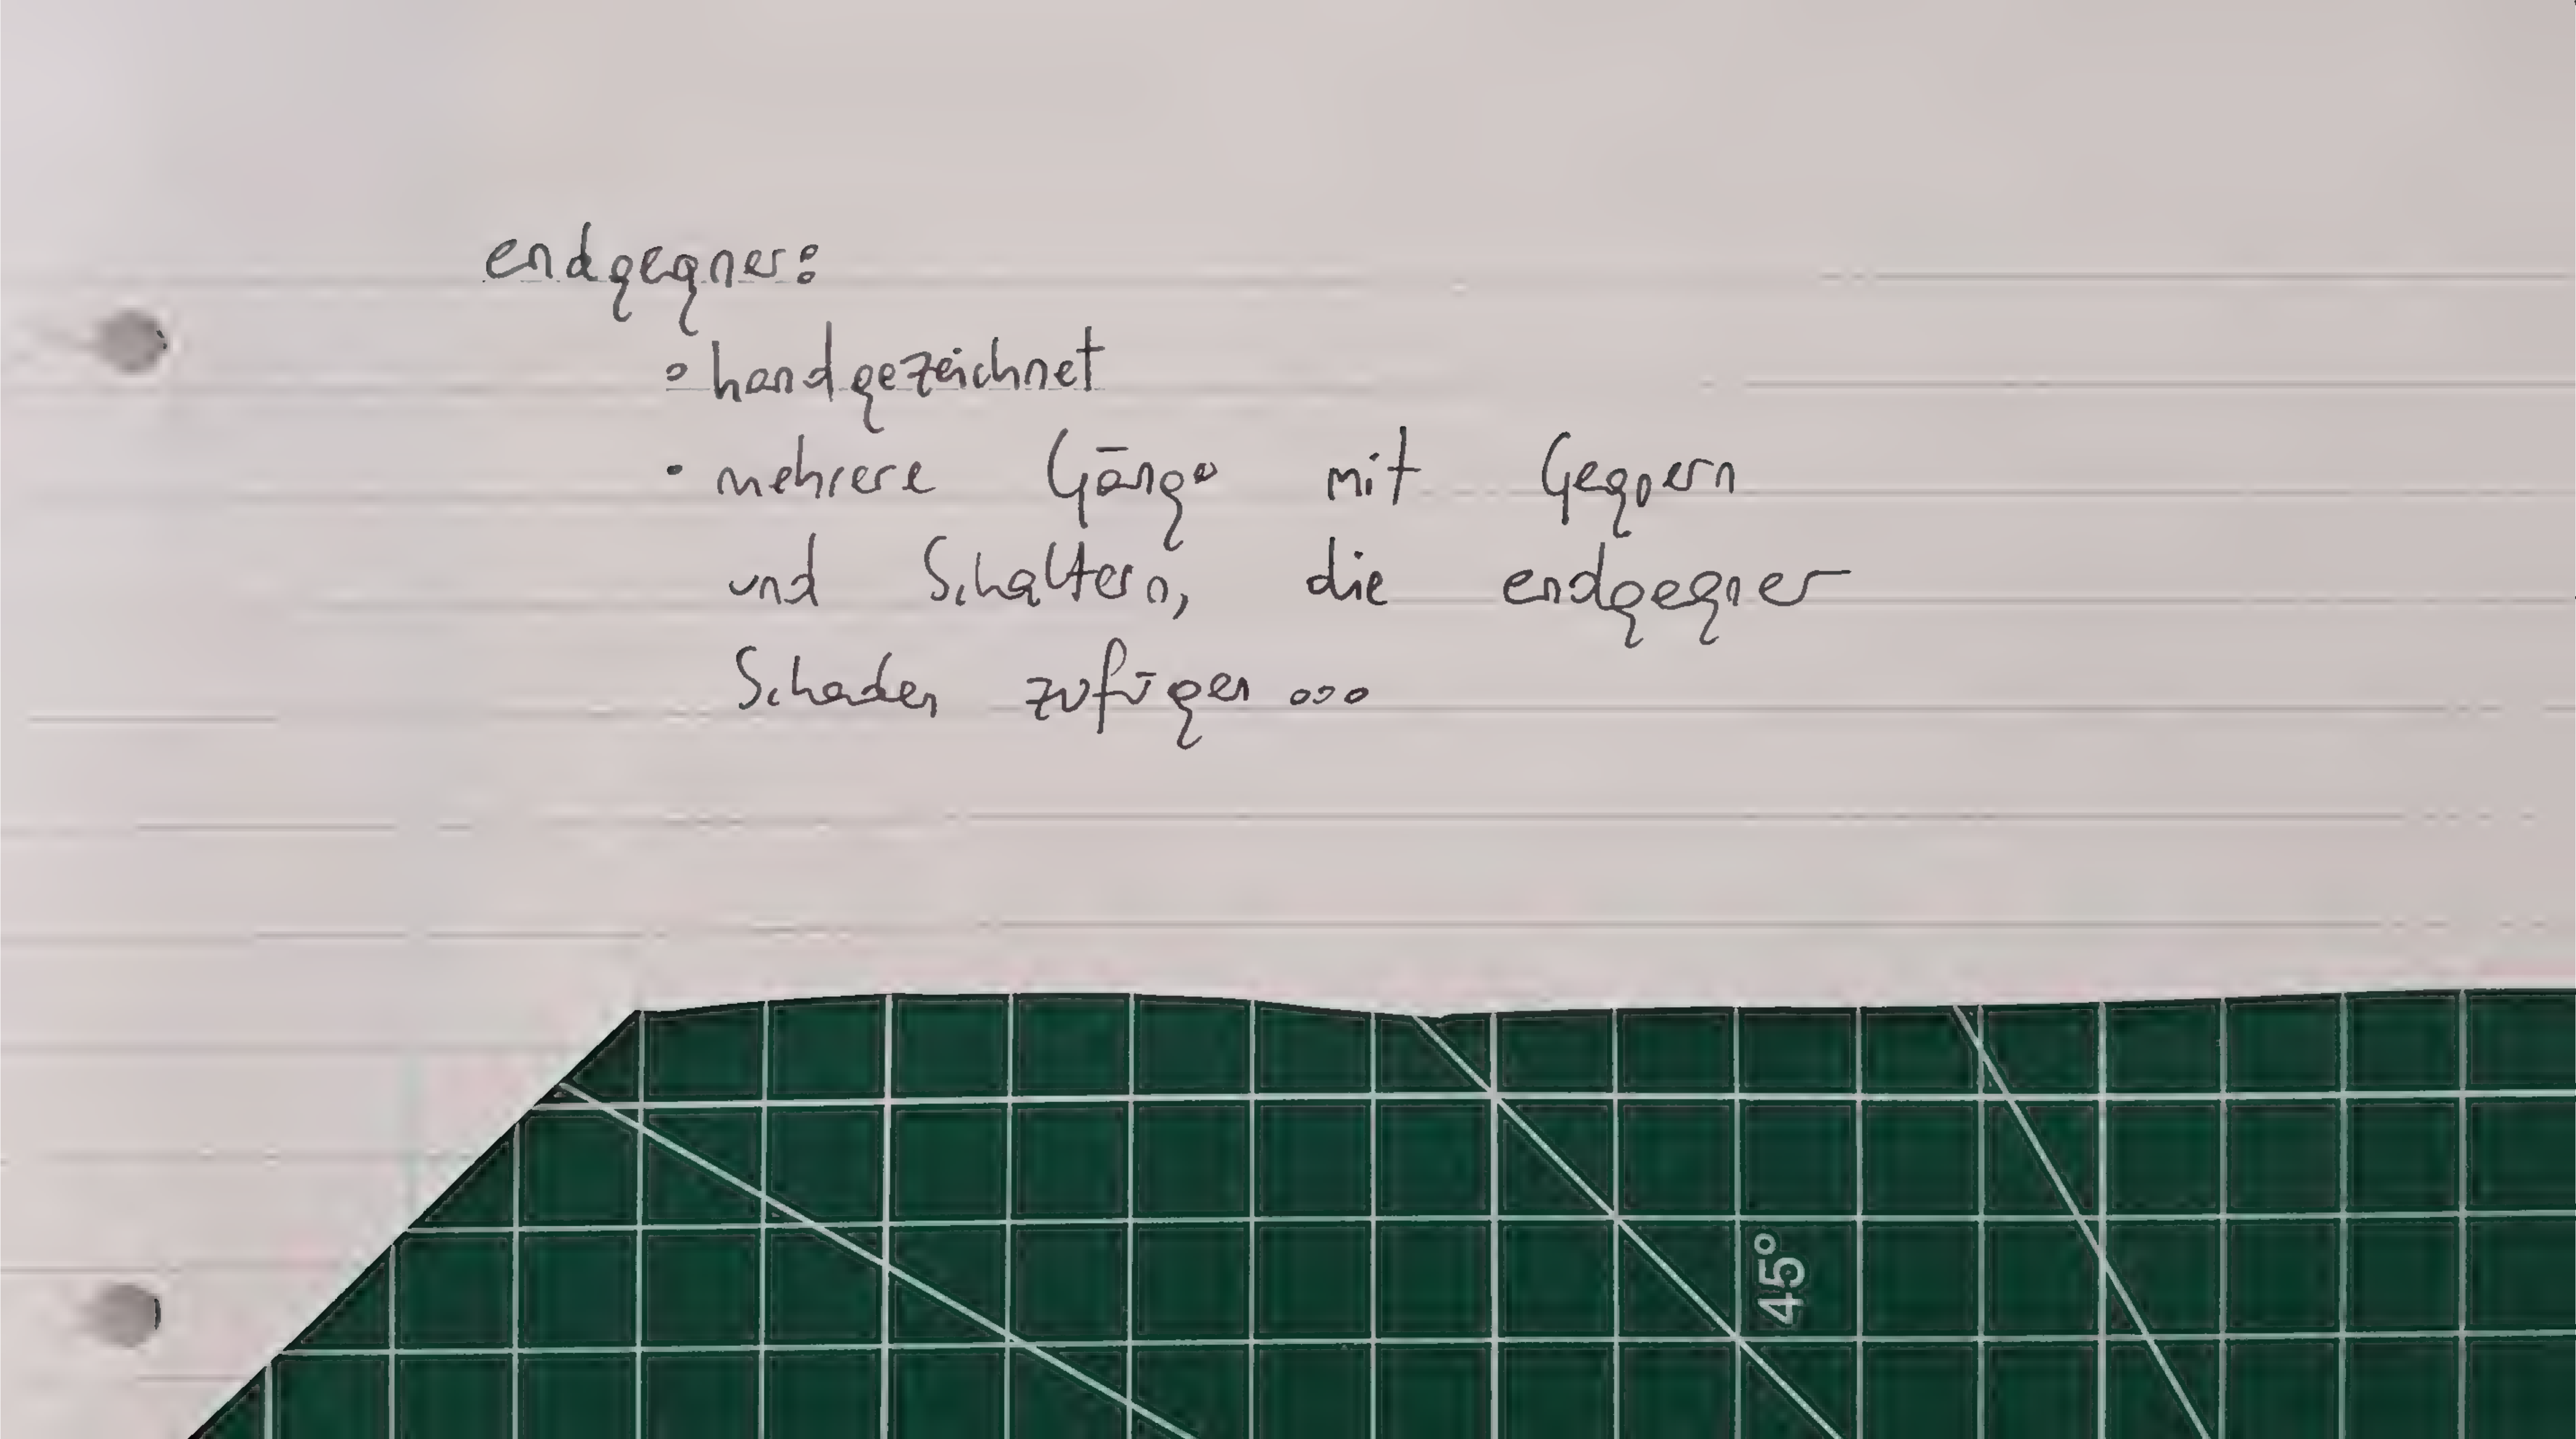 endgegner:
• handgezeichnet
• mehrere Gänge mit Gegnern
und Schaltern, die endgegner
Schaden zufügen...
45°